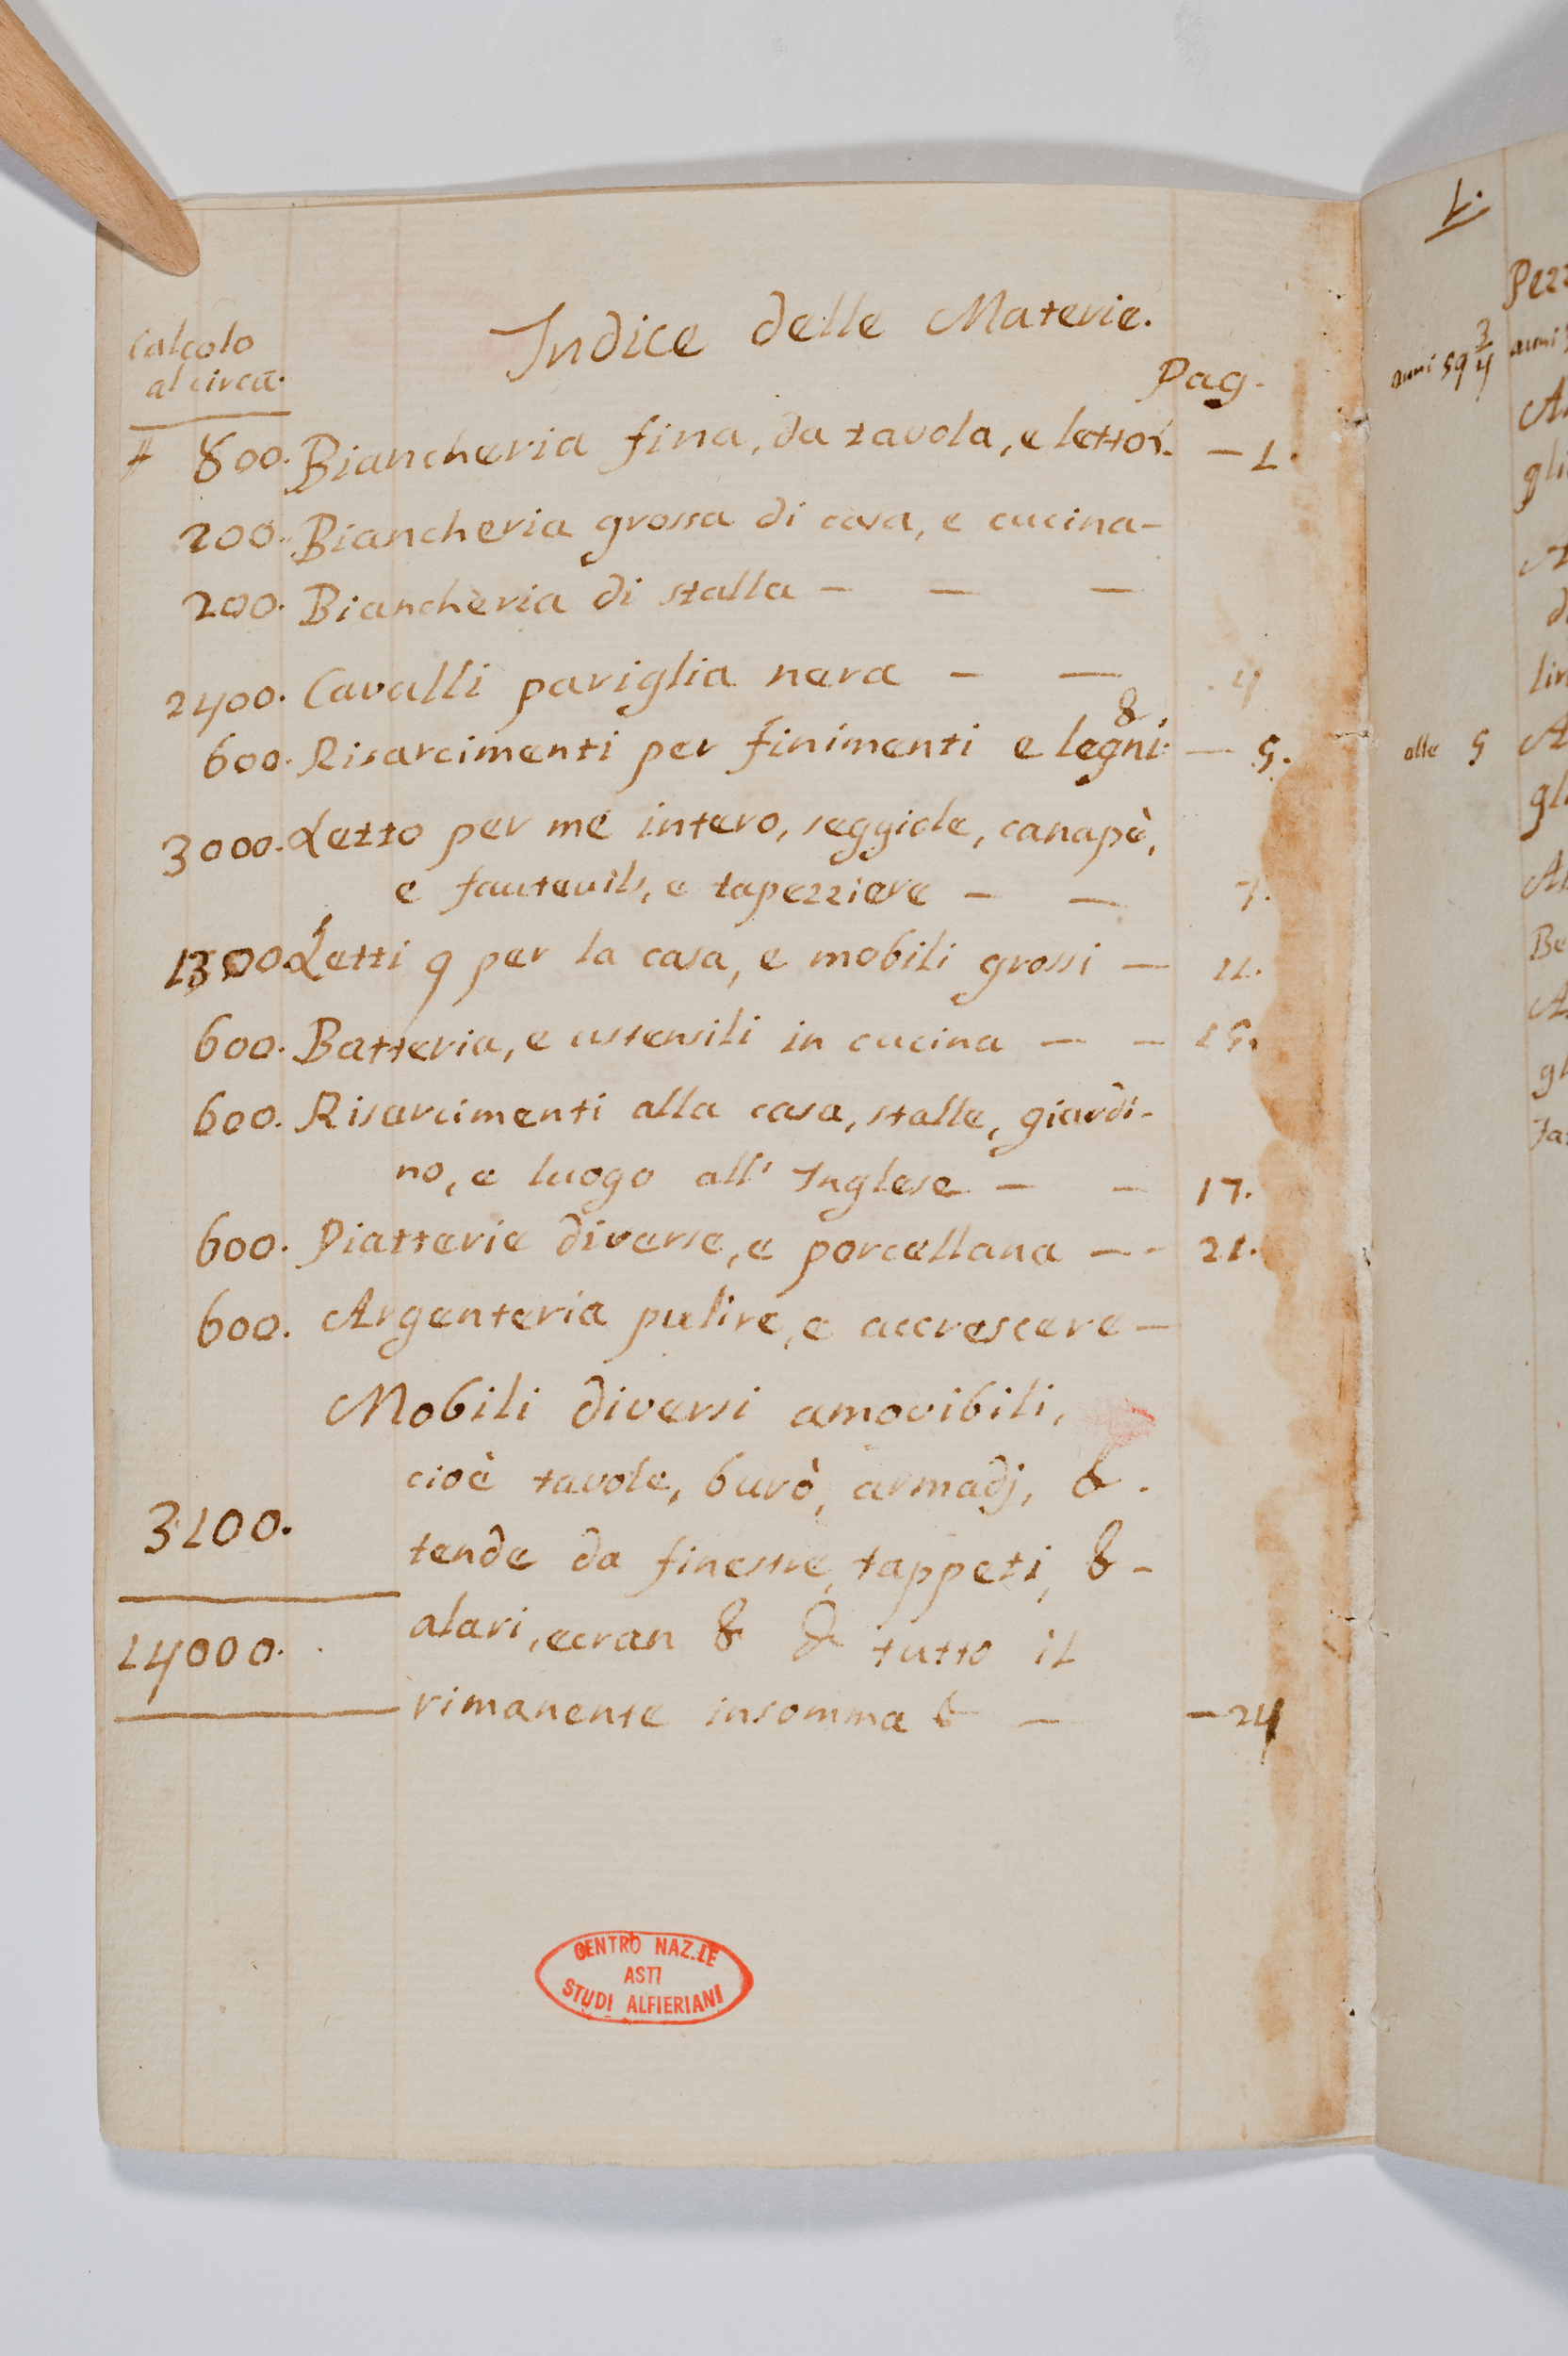 Indice delle Materie.
Calcolo
al circa.
Pag.
# 800. Biancheria fina, da tavola, e letto. — 1.
200. Biancheria grossa di casa, e cucina —
200. Biancheria di stalla — — —
2400. Cavalli pariglia nera — — 4
600. Risarcimenti per finimenti e legni & — 5.
3000. Letto per me intero, seggiole, canapè,
e fauteuils, e tapezziere — — 7.
1300 Letti 9 per la casa, e mobili grossi — 11.
600. Batteria, e ustensili in cucina — — 15.
600. Risarcimenti alla casa, stalle, giardi-
no, e luogo all' Inglese — — 17.
600. Piatterie diverse, e porcellana — - 21.
600. Argenteria pulire, e accrescere —
Mobili diversi amovibili,
cioè tavole, burò, armadj, &.
3100. tende da finestre, tappeti, & -
14000. alari, ecran & & tutto il
rimanente insomma & — — 24
CENTRO NAZ.LE
ASTI
STUDI ALFIERIANI
1.
anni 59 3/4
alle 5